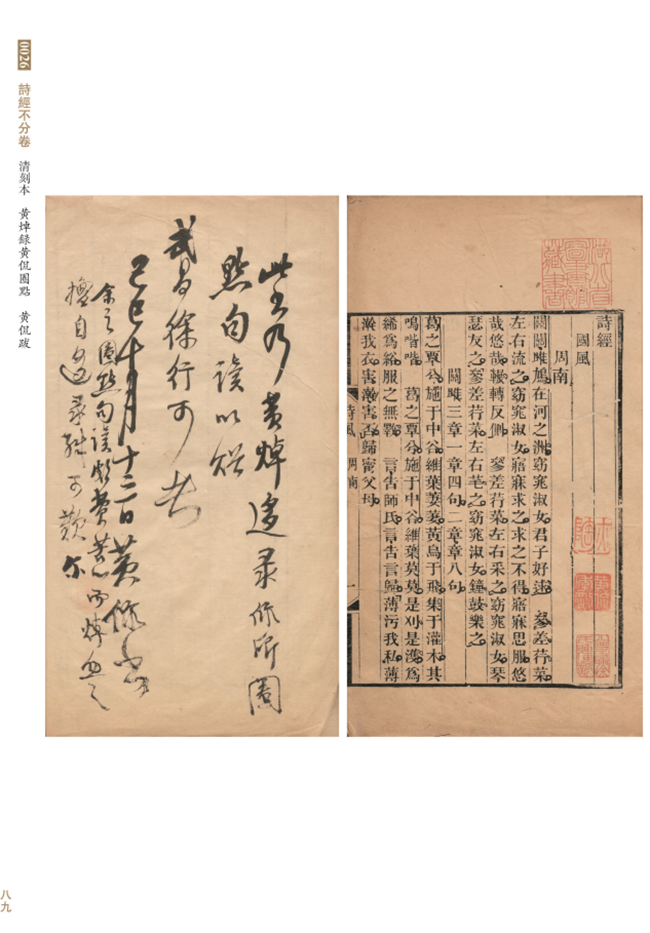 0026
詩經不分卷
清刻本　黃焯録黃侃圈點　黃侃跋
詩經
國風
周南
關關雎鳩在河之洲窈窕淑女君子好逑　參差荇菜
左右流之窈窕淑女寤寐求之求之不得寤寐思服悠
哉悠哉輾轉反側　參差荇菜左右采之窈窕淑女琴
瑟友之參差荇菜左右芼之窈窕淑女鐘鼓樂之
關雎三章一章四句二章章八句
葛之覃兮施于中谷維葉萋萋黃鳥于飛集于灌木其
鳴喈喈　葛之覃兮施于中谷維葉莫莫是刈是濩爲
絺爲綌服之無斁　言告師氏言告言歸薄污我私薄
澣我衣害澣害否歸寧父母
詩風
周南
一
此上乃黃焯迻录侃所圈
點句讀以貽
武昌徐行可者
己巳年十月十二日黃侃
余之圈點句讀
擅自迻录
八九